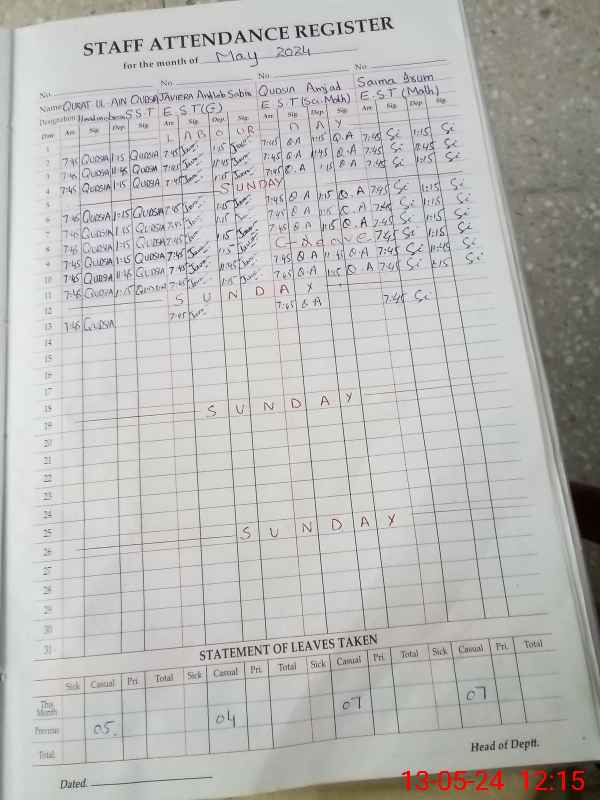 STAFF ATTENDANCE REGISTER
for the month of May 2024
No. No. No. No.
Name QURAT UL-AIN QUDSIA JAVIERA Andleb Sabir QUDSIA Amjad Saima Irum
Designation Headmistress S.S.T E.S.T (G) E.S.T (Sci. Math) E.S.T (Math)
Date Arr. Sig. Dep. Sig. Arr. Sig. Dep. Sig. Arr. Sig. Dep. Sig. Arr. Sig. Dep. Sig.
1 LABOUR DAY
2 7:45 QUDSIA 1:15 QUDSIA 7:45 1:15 7:45 Q.A 1:15 Q.A 7:45 Si 1:15 Si
3 7:45 QUDSIA 11:45 QUDSIA 7:45 11:45 7:45 Q.A 11:45 Q.A 7:45 Si 11:45 Si
4 7:45 QUDSIA 1:15 QUDSIA 7:45 1:15 7:45 Q.A 1:15 Q.A 7:45 Si 1:15 Si
5 SUNDAY
6 7:45 QUDSIA 1:15 QUDSIA 7:45 1:15 7:45 Q.A 1:15 Q.A 7:45 Si 1:15 Si
7 7:45 QUDSIA 1:15 QUDSIA 7:45 1:15 7:45 Q.A 1:15 Q.A 7:45 Si 1:15 Si
8 7:45 QUDSIA 1:15 QUDSIA 7:45 1:15 7:45 Q.A 1:15 Q.A 7:45 Si 1:15 Si
9 7:45 QUDSIA 1:15 QUDSIA 7:45 1:15 C-Leave 7:45 Si 1:15 Si
10 7:45 QUDSIA 11:45 QUDSIA 7:45 11:45 7:45 Q.A 11:45 Q.A 7:45 Si 11:45 Si
11 7:45 QUDSIA 1:15 QUDSIA 7:45 1:15 7:45 Q.A 1:15 Q.A 7:45 Si 1:15 Si
12 SUNDAY
13 7:45 QUDSIA 7:45 7:45 Q.A 7:45 Si
14
15
16
17
18
19 SUNDAY
20
21
22
23
24
25
26 SUNDAY
27
28
29
30
31
STATEMENT OF LEAVES TAKEN
Sick Casual Pri. Total Sick Casual Pri. Total Sick Casual Pri. Total Sick Casual Pri. Total
This Month
Previous 05. 04 07 07
Total
Dated.
Head of Deptt.
13-05-24 12:15